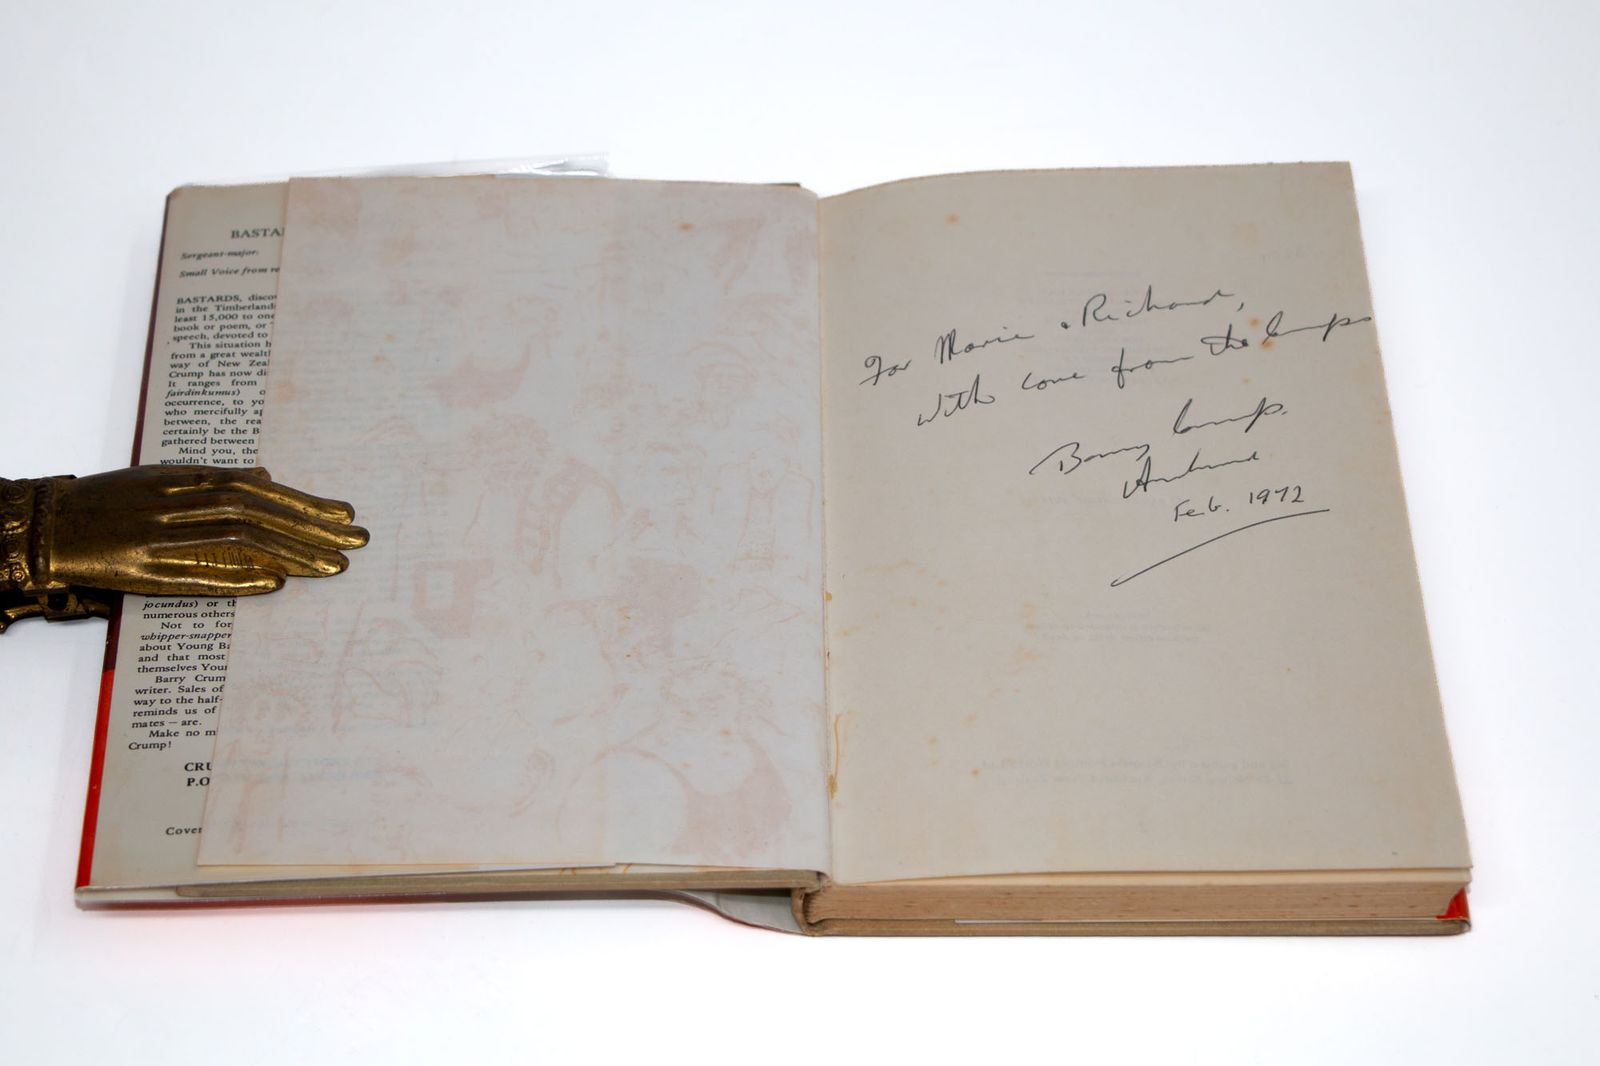 BASTA
Sergeant-major:
Small Voice from re
BASTARDS, disco
in the Timberland
least 15,000 to one
book or poem, or
speech, devoted to
This situation h
from a great wealt
way of New Zea
Crump has now di
It ranges from
fairdinkumus) o
occurrence, to yo
who mercifully ap
between, the rea
certainly be the B
gathered between
Mind you, the
wouldn't want to
jocundus) or th
numerous others
Not to for
whipper-snapper
about Young Ba
and that most
themselves Your
Barry Crum
writer. Sales of
way to the half-
reminds us of
mates — are.
Make no m
Crump!
CRU
P.O
Cover
For Marie & Richard,
with love from the Crumps
Barry Crump.
Feb. 1972